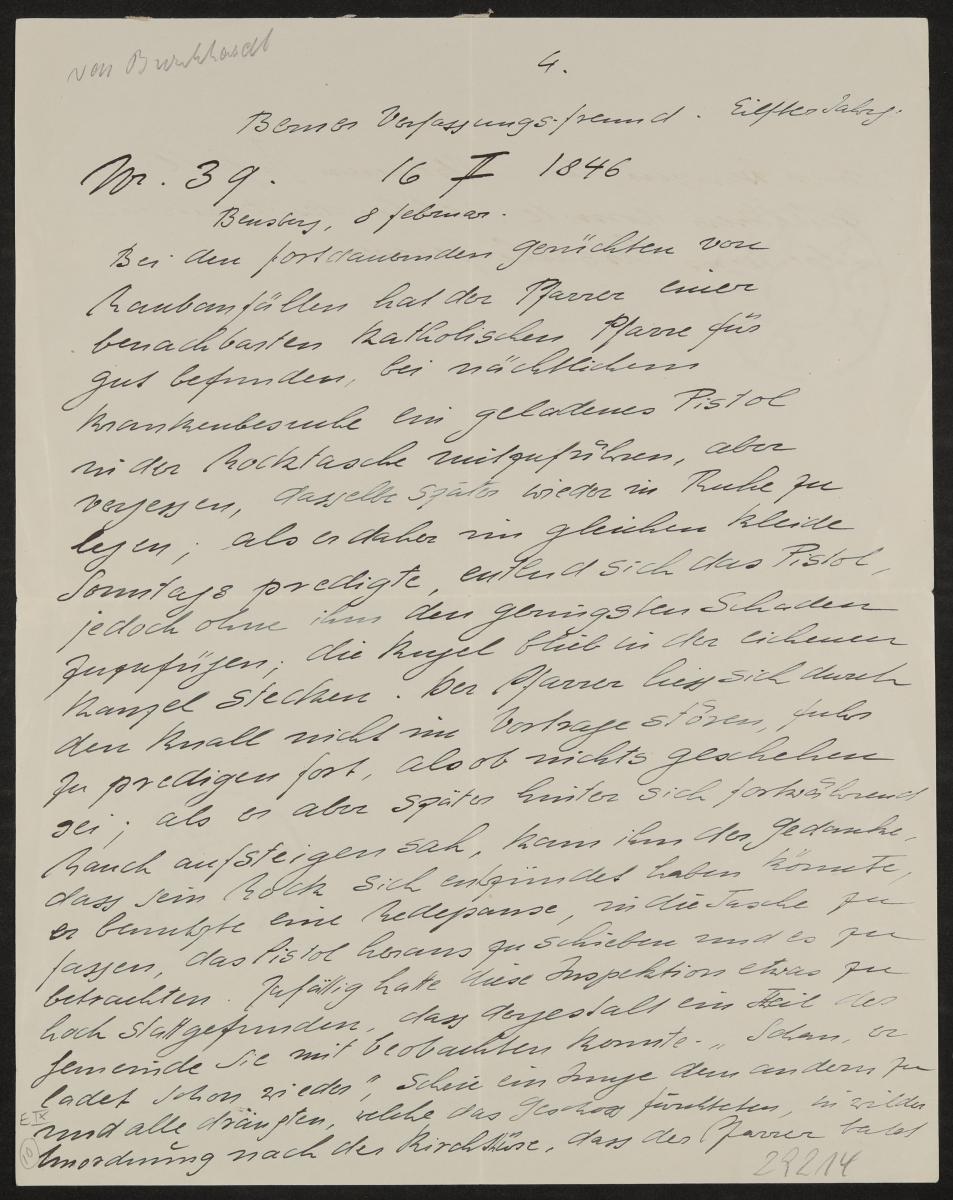 von Burckhardt
4.
Berner Verfassungs-freund. Eilfter Jahrg.
Nr. 39. 16 II 1846
Bensberg, 8 februar.
Bei den fortdauernden gerüchten von
Raubanfällen hat der Pfarrer einer
benachbarten katholischen Pfarre für
gut befunden, bei nächtlichem
Krankenbesuche ein geladenes Pistol
in der Rocktasche mitzuführen, aber
vergessen, dasselbe später wieder in Ruhe zu
legen; als er daher im gleichen Kleide
Sonntags predigte, entlud sich das Pistol,
jedoch ohne ihm den geringsten Schaden
zuzufügen; die Kugel blieb in der eichenen
Kanzel stecken. Der Pfarrer liess sich durch
den Knall nicht im Vortrage stören, fuhr
zu predigen fort, als ob nichts geschehen
sei; als er aber später hinter sich fortwährend
Rauch aufsteigen sah, kam ihm der Gedanke,
dass sein Rock sich entzündet haben könnte,
er benutzte eine Redepause, in die Tasche zu
fassen, das Pistol heraus zu schieben und es zu
betrachten. Zufällig hatte diese Inspektion etwas zu
hoch stattgefunden, dass dergestalt ein Teil der
Gemeinde sie mit beobachten konnte. „Schau, er
ladet schon wieder", schrie ein Junge dem andern zu
und alle drängten, welche das Geschoss fürchteten, in wilder
Unordnung nach der Kirchthüre, dass der Pfarrer bald
E IX
10
29214